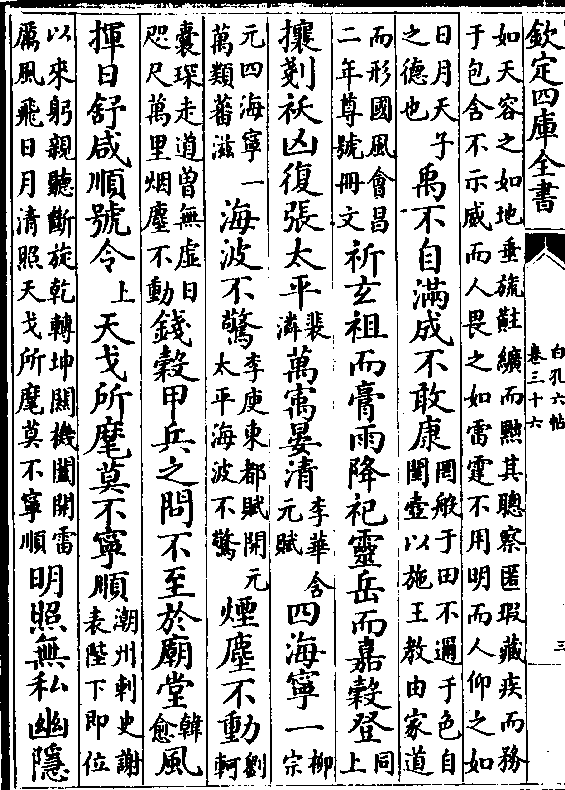 欽定四庫全書
白孔六帖
卷三十六
三
如天容之如地垂旒黈纊而黜其聰察匿瑕藏疾而務
于包含不示威而人畏之如雷霆不用明而人仰之如
日月天子
之德也
禹不自滿成不敢康
罔般于田不邇于色自
閨壼以施王教由家道
而形國風會昌
二年尊號冊文
祈玄祖而膏雨降祀靈岳而嘉穀登
同
上
攘剗祅凶復張太平
裴
潾
萬㝢晏清
李華含
元賦
四海寧一
柳
宗
元四海寧一
萬類蕃滋
海波不驚
李庾東都賦開元
太平海波不驚
煙塵不動
劉
軻
囊琛走道曾無虛日
咫尺萬里烟塵不動
錢穀甲兵之問不至於廟堂
韓
愈
風
揮日舒咸順號令
上
天戈所麾莫不寧順
潮州刺史謝
表陛下即位
以來躬親聽斷旋乾轉坤關機闔開雷
厲風飛日月清照天戈所麾莫不寧順
明照無私幽隱